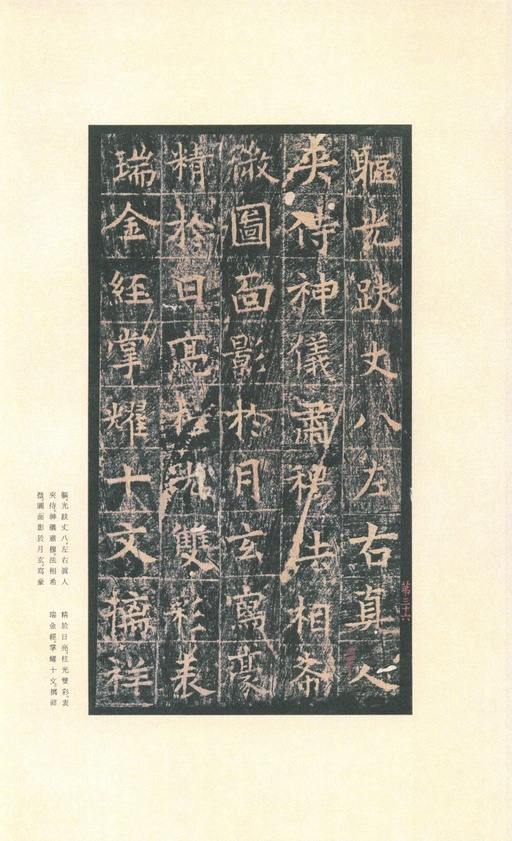 軀光趺丈八左右真人
夾侍神儀肅穆法相希
微圖面影於月玄寫豪
精於日亮柱光雙彩表
瑞金經掌耀十文摛祥
第三十六
軀光趺丈八左右真人
夾侍神儀肅穆法相希
微圖面影於月玄寫豪
精於日亮柱光雙彩表
瑞金經掌耀十文摛祥